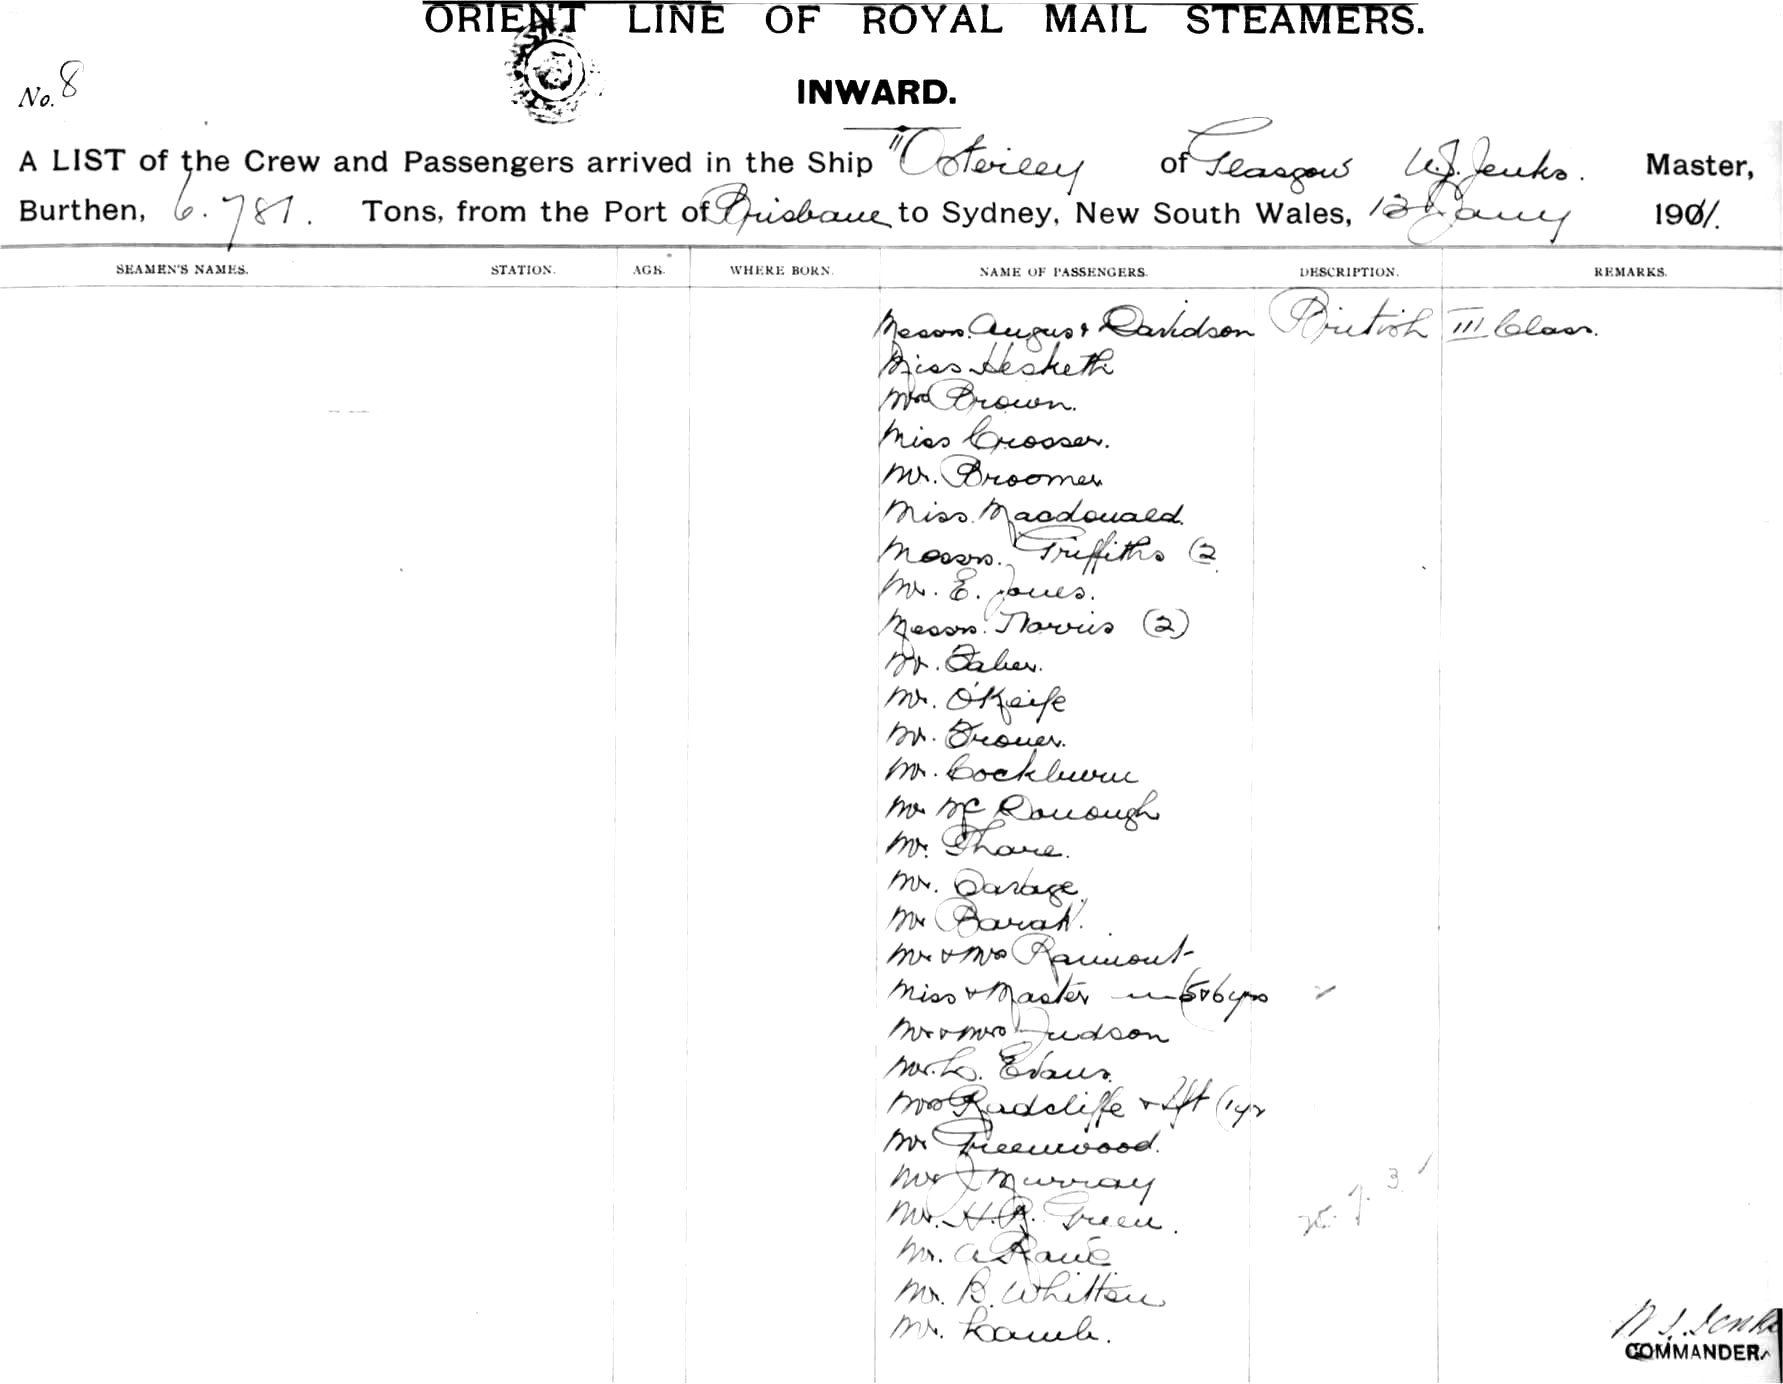 ORIENT LINE OF ROYAL MAIL STEAMERS.
No. 8
INWARD.
A LIST of the Crew and Passengers arrived in the Ship "Osterley of Glasgow A.J. Jenks. Master,
Burthen, 6.781. Tons, from the Port of Brisbane to Sydney, New South Wales, 1911.
SEAMEN'S NAMES. STATION. AGE. WHERE BORN. NAME OF PASSENGERS. DESCRIPTION. REMARKS.
Messrs. Angus & Davidson British III Class.
Miss Hesketh
Mrs Brown.
Miss Crosser.
Mr. Broomer
Miss. Macdonald.
Messrs. Griffiths (2
Mr. E. Jones.
Messrs. Norris (2)
Mr. Faher.
Mr. O'Keife
Mr.
Mr. Cockburn
Mr McDonough
Mr. Thore.
Mr. Savage
Mr Barak.
Mr & Mrs Raimont
Miss & Master (5 & 6 yrs
Mr & Mrs Judson
Mr. L. Evans.
Mrs Radcliffe & Inft (1 yr
Mr Greenwood.
Mr J Murray
Mr. H.R. Green.
Mr. A
Mr. B. Whitten
Mr. Lamb.
COMMANDER